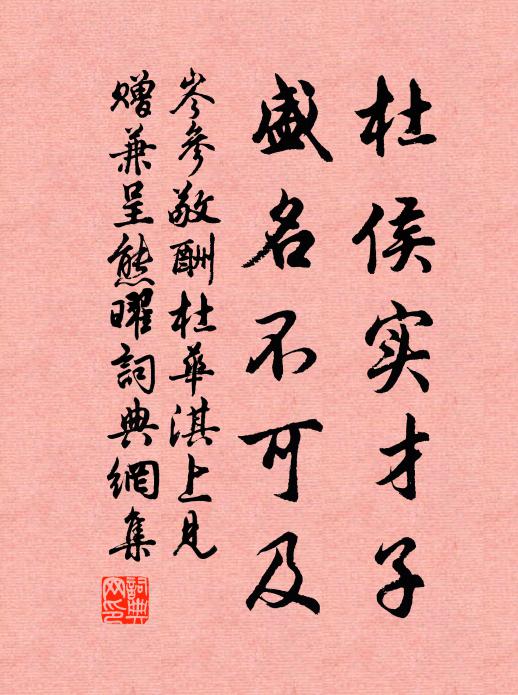 杜侯实才子
盛名不可及
岑參敬酬杜華淇上見
赠兼呈熊曜詞典網集
詞典网印